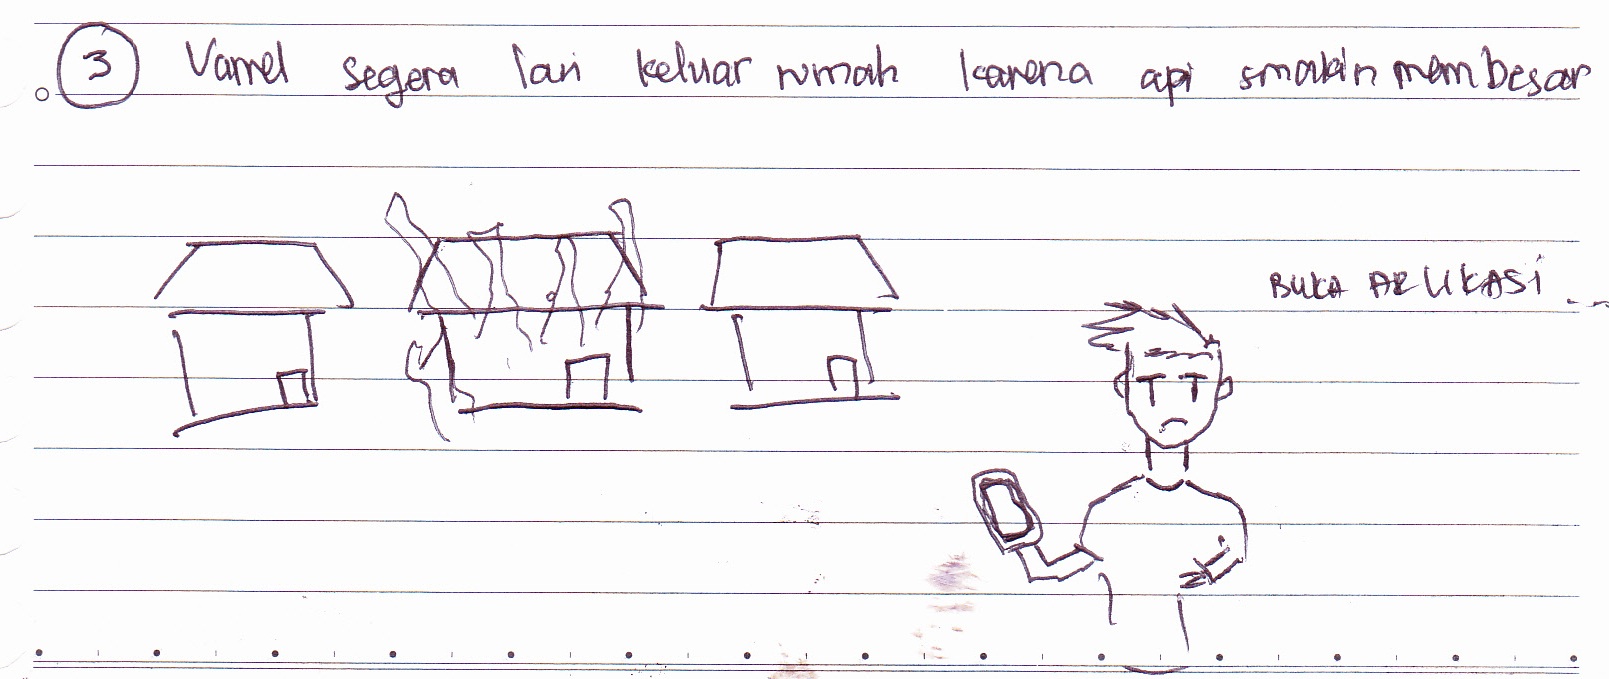 3 Varrel segera lari keluar rumah karena api smakin membesar
BUKA APLIKASI...